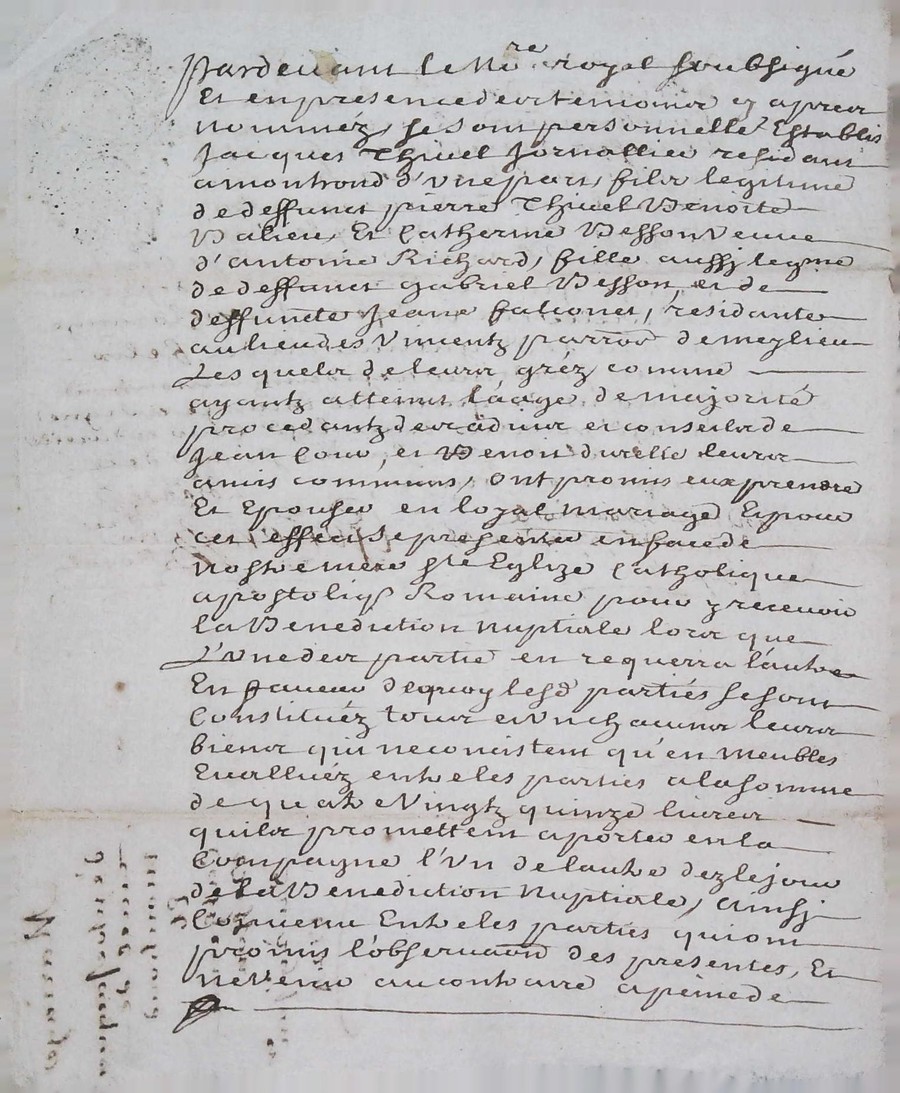 Pardevant le no.re royal soubsigné
Et en presence des temoins cy apres
nomméz, se sont personnelle.t Establis
Jacques Thivel Jornallier residant
a montrond d'une part, fils legitime
de deffunct pierre Thivel Benoite
Valieu, Et Catherine Besson Veuve
d'antoine Richard, fille aussy legme
de deffunct gabriel Besson, et de
deffuncte Jeane falconet, residante
au lieu des Vincentz parroe de meylieu
Les quels de leurs gréz comme
ayantz atteint láage de majorité
procedantz des advis et conseils de
Jean Cour, et Benoit durelle leurs
amis communs, ont promis eux prendre
Et Epouser en loyal mariage Et pour
cet effect se presenter en face de
nostre mere ste Eglize Catholique
apostoliq Romaine pour y recevoir
la Benediction nuptiale lors que
L'une des partie en requerra l'autre
En faveur dequoy lesd parties se sont
Constituéz tous et un chacuns leurs
biens qui ne concistent qu'en meubles
Evalluéz entre les parties a la somme
de quatre Vingtz quinze livres
quils promettent aporter en la
Compagne l'Un de lautre dez le jour
de la Benediction nuptiale, ainsy
Convenu Entre les parties qui ont
promis l'observaon des presentes, Et
ne venir au contraire a peine de